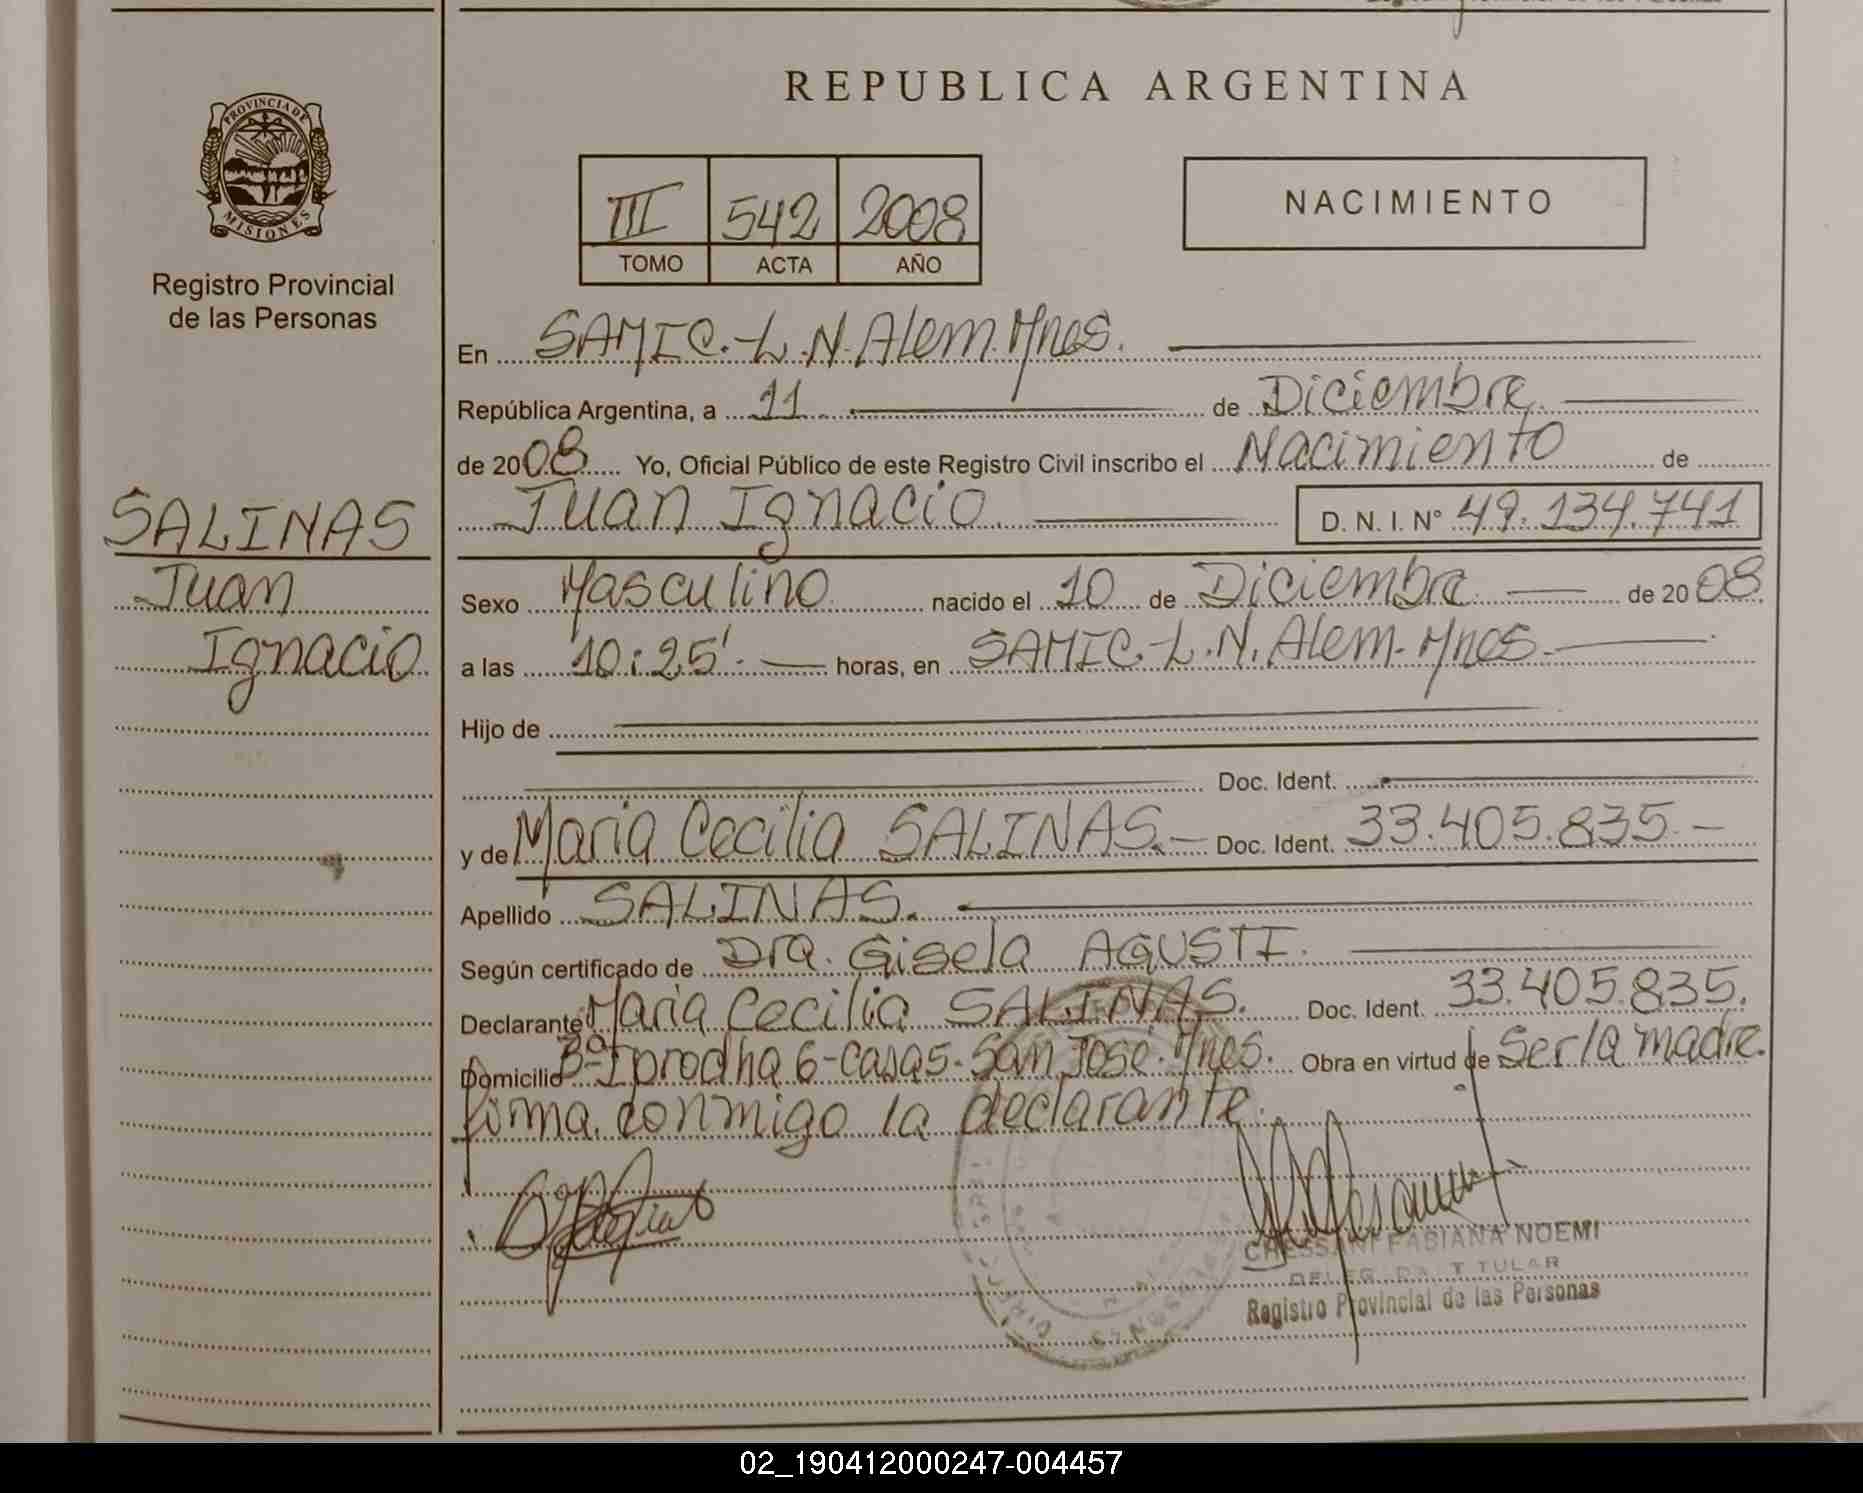 REPUBLICA ARGENTINA
PROVINCIA DE
MISIONES
Registro Provincial
de las Personas
III 542 2008
TOMO ACTA AÑO
NACIMIENTO
En SAMIC.-L.N.Alem.Mnes.
República Argentina, a 11 de Diciembre
de 2008 Yo, Oficial Público de este Registro Civil inscribo el Nacimiento de
Juan Ignacio. D. N. I. Nº 49.134.741
SALINAS
Juan
Ignacio
Sexo Masculino nacido el 10 de Diciembre de 2008
a las 10:25'. horas, en SAMIC.-L.N.Alem.-Mnes.
Hijo de
Doc. Ident.
y de Maria Cecilia SALINAS.- Doc. Ident. 33.405.835.-
Apellido SALINAS.
Según certificado de Dra. Gisela AGUSTI.
Declarante Maria Cecilia SALINAS. Doc. Ident. 33.405.835.
Domicilio Bº-Iprodha 6-casas-San José.Mnes. Obra en virtud de Ser la madre.
firma conmigo la declarante.
CHESSANI FABIANA NOEMI
DELEGADA TITULAR
Registro Provincial de las Personas
02_190412000247-004457